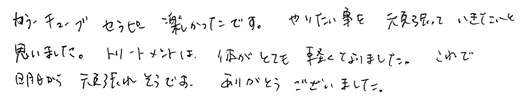 カラーキューブ セラピー 楽しかったです。 やりたい事を 頑張って いきたいと
思いました。 トリートメントは、 体が とても 軽くなりました。 これで
明日から 頑張れそうです。 ありがとう ございました。